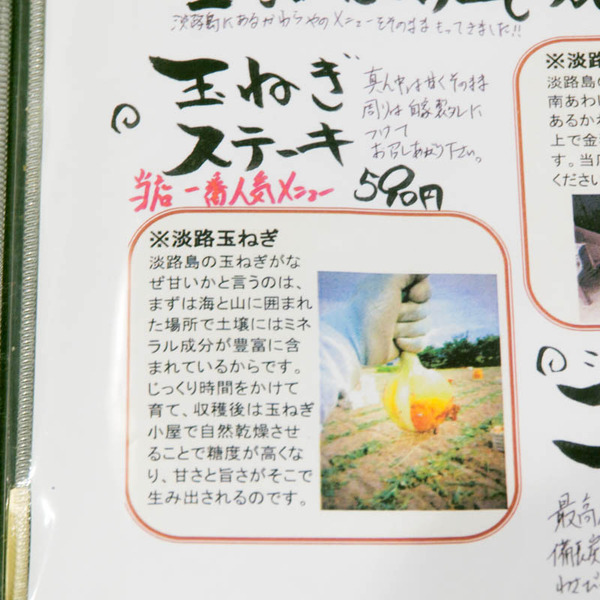 淡路島にあるかわらやのメニューをそのままもってきました!!
玉ねぎ
ステーキ
真ん中は甘くそのまま
周りは自家製タレに
つけて
お召しあがり下さい。
当店一番人気メニュー
590円
※淡路玉ねぎ
淡路島の玉ねぎがな
ぜ甘いかと言うのは、
まずは海と山に囲まれ
た場所で土壌にはミネ
ラル成分が豊富に含
まれているからです。
じっくり時間をかけて
育て、収穫後は玉ねぎ
小屋で自然乾燥させ
ることで糖度が高くな
り、甘さと旨さがそこで
生み出されるのです。
※淡路
淡路島の
南あわし
あるかわ
上で金
す。当店
ください
最高
備長炭
わさび